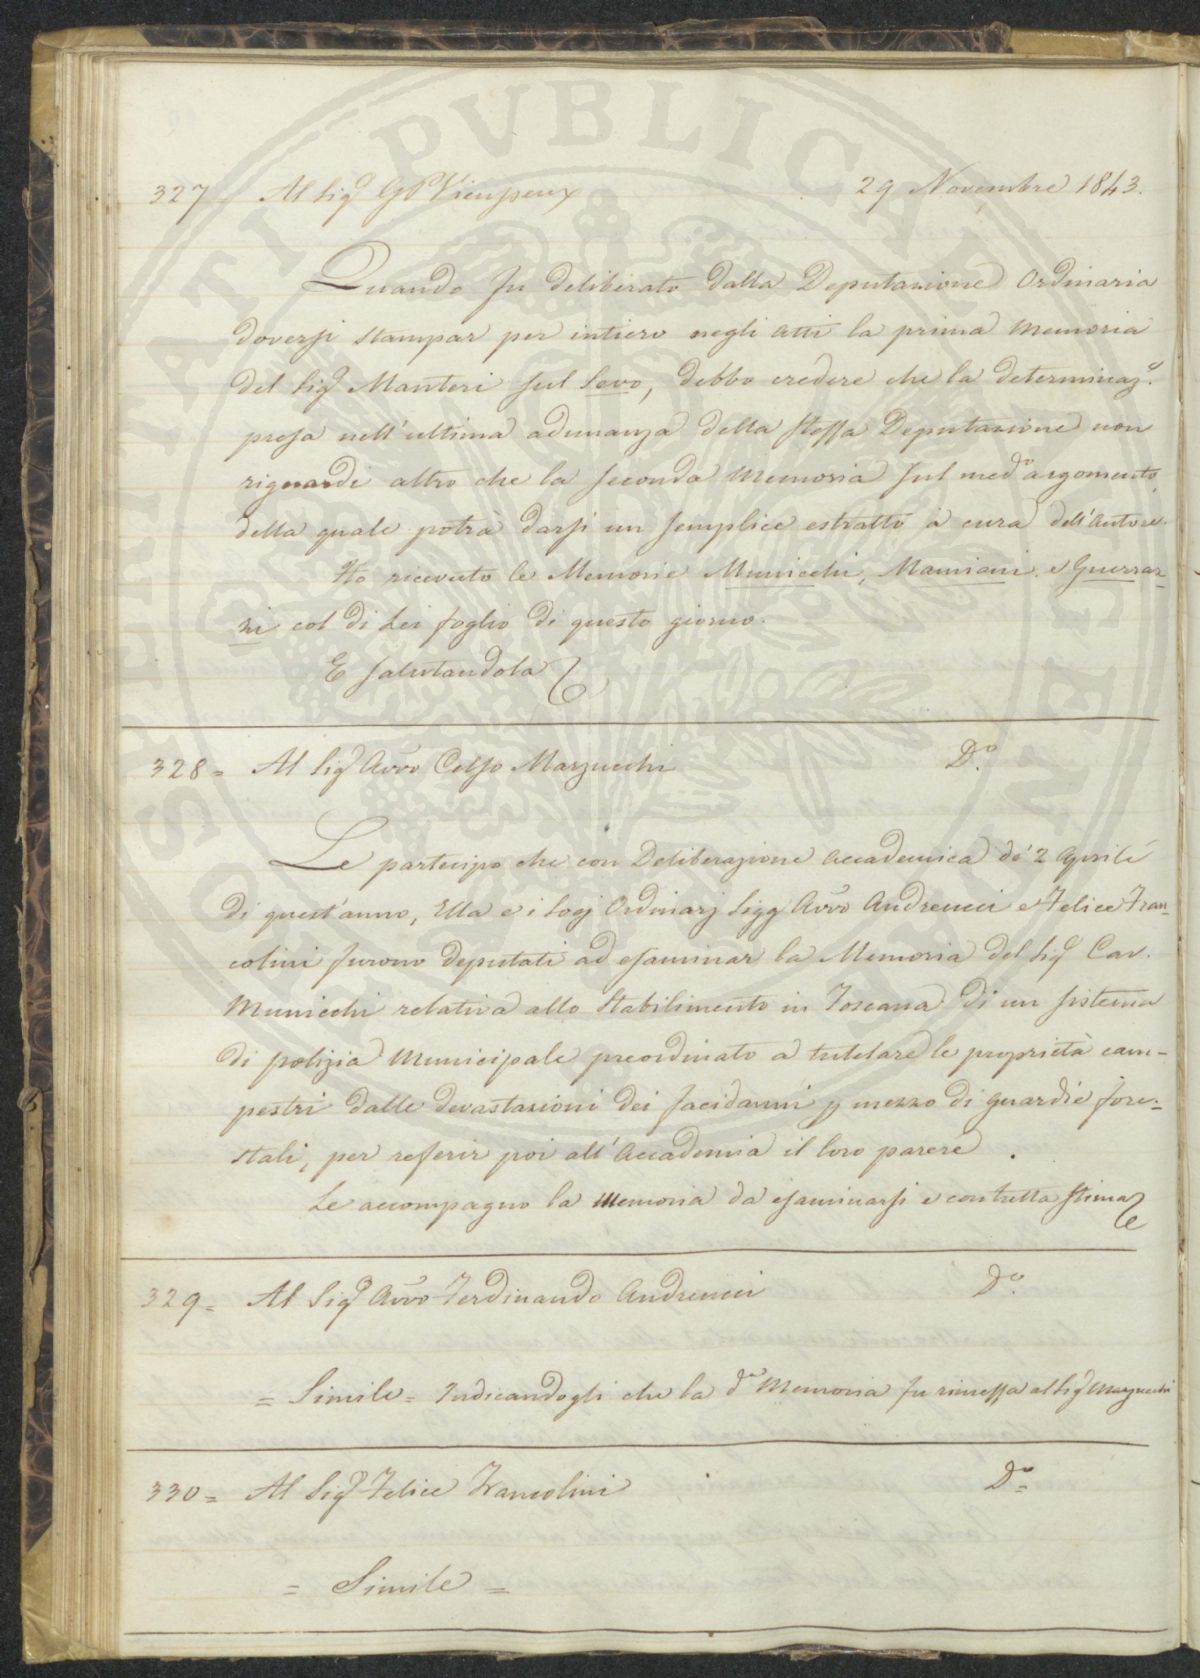 327 Al Sig.r GP Vieusseux 29 Novembre 1843.
Quando fu deliberato dalla Deputazione Ordinaria
doversi stampar per intiero negli Atti la prima Memoria
del Sig.r Manteri sul Sevo, debbo credere che la determinaz.e
presa nell'ultima adunanza della stessa Deputazione non
riguardi altro che la seconda Memoria sul med.o argomento,
della quale potrà darsi un semplice estratto a cura dell'Autore.
Ho ricevuto le Memorie Municchi, Mamiani e Guerraz=
zi col di Lei foglio di questo giorno.
E salutandola
328= Al Sig.r Avvo Celso Marzucchi D.o
Le partecipo che con Deliberazione Accademica de' 2 Aprile
di quest'anno, Ella e i Socj Ordinarj Sigg Avvo Andreucci e Felice Fran=
colini furono deputati ad esaminar la Memoria del Sig.r Cav.
Municchi relativa allo Stabilimento in Toscana di un sistema
di polizia Municipale preordinato a tutelare le proprietà cam=
pestri dalle devastazioni dei facidanni p mezzo di guardie fore=
stali, per referir poi all'Accademia il loro parere.
Le accompagno la Memoria da esaminarsi e con tutta stima
329= Al Sig.r Avvo Ferdinando Andreucci D.o
= Simile = Indicandogli che la d.a Memoria fu rimessa al Sig.r Marzucchi
330= Al Sig.r Felice Francolini D.o
= Simile =
PUBLICA